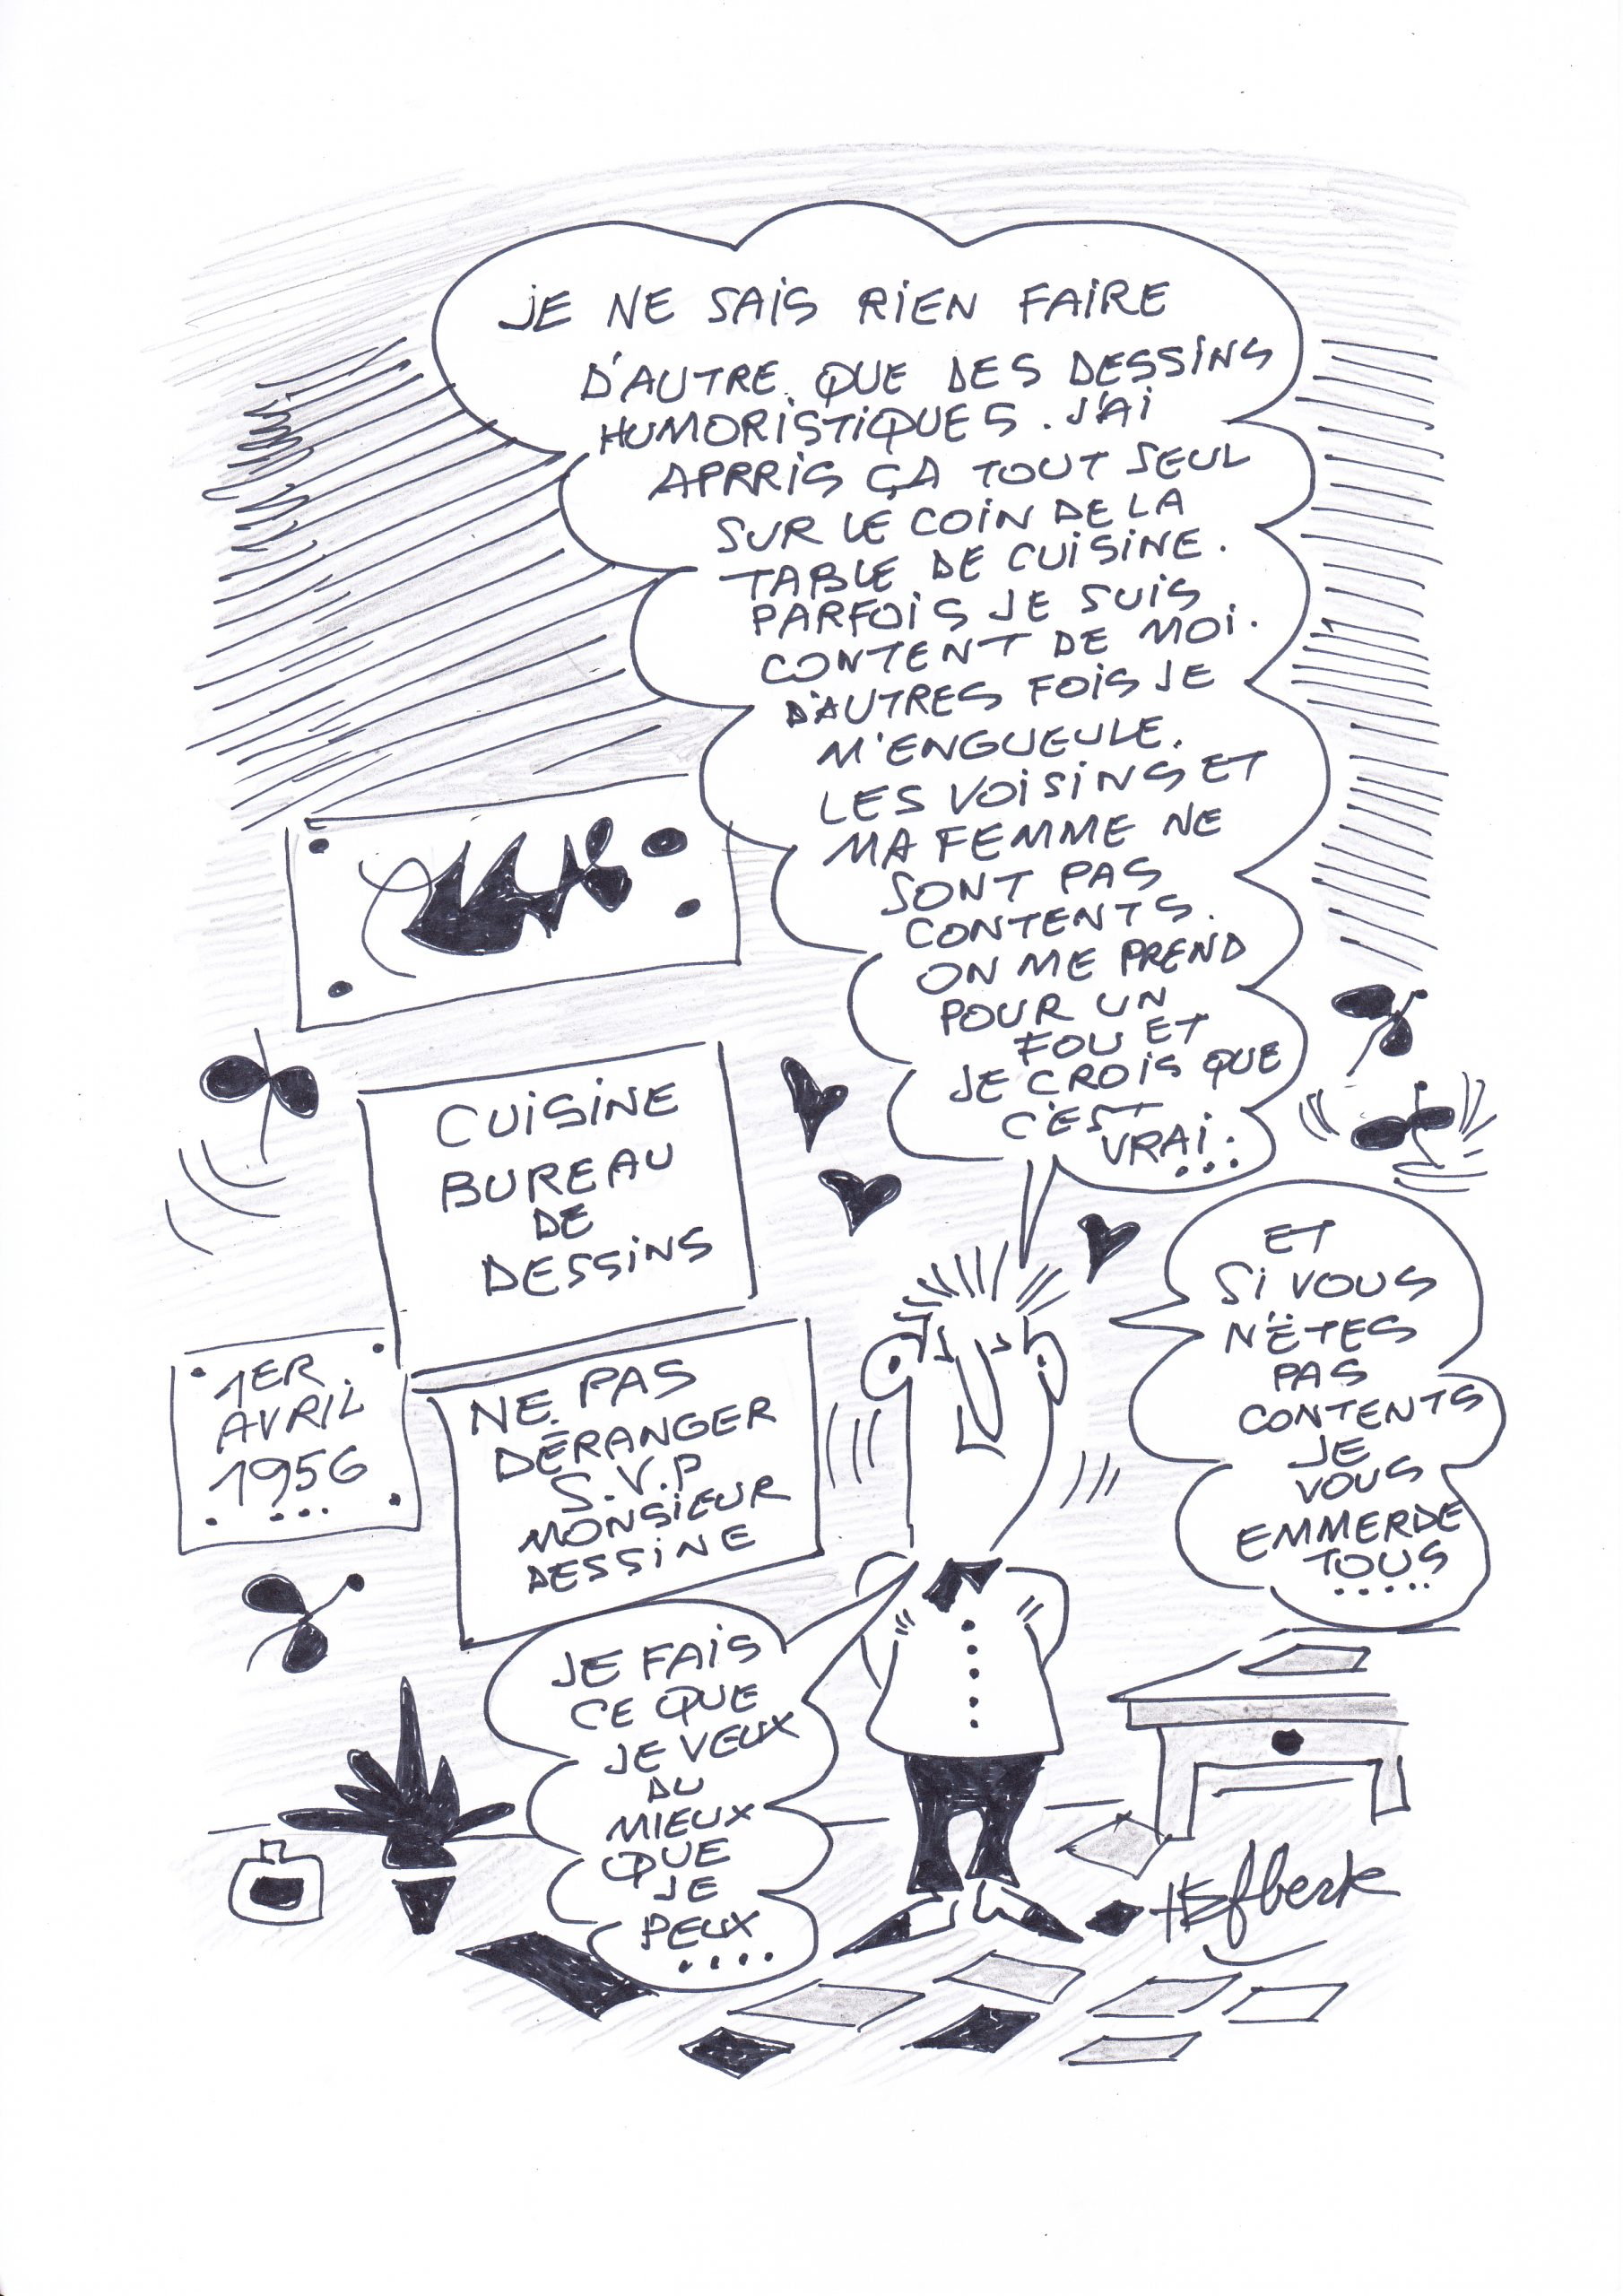 JE NE SAIS RIEN FAIRE
D'AUTRE QUE DES DESSINS
HUMORISTIQUES. J'AI
APRRIS ÇA TOUT SEUL
SUR LE COIN DE LA
TABLE DE CUISINE.
PARFOIS JE SUIS
CONTENT DE MOI.
D'AUTRES FOIS JE
M'ENGUEULE.
LES VOISINS ET
MA FEMME NE
SONT PAS
CONTENTS.
ON ME PREND
POUR UN
FOU ET
JE CROIS QUE
C'EST
VRAI...
CUISINE
BUREAU
DE
DESSINS
1ER
AVRIL
1956
...
NE PAS
DÉRANGER
S.V.P
MONSIEUR
DESSINE
ET
SI VOUS
N'ÊTES
PAS
CONTENTS
JE
VOUS
EMMERDE
TOUS
.....
JE FAIS
CE QUE
JE VEUX
DU
MIEUX
QUE
JE
PEUX
....